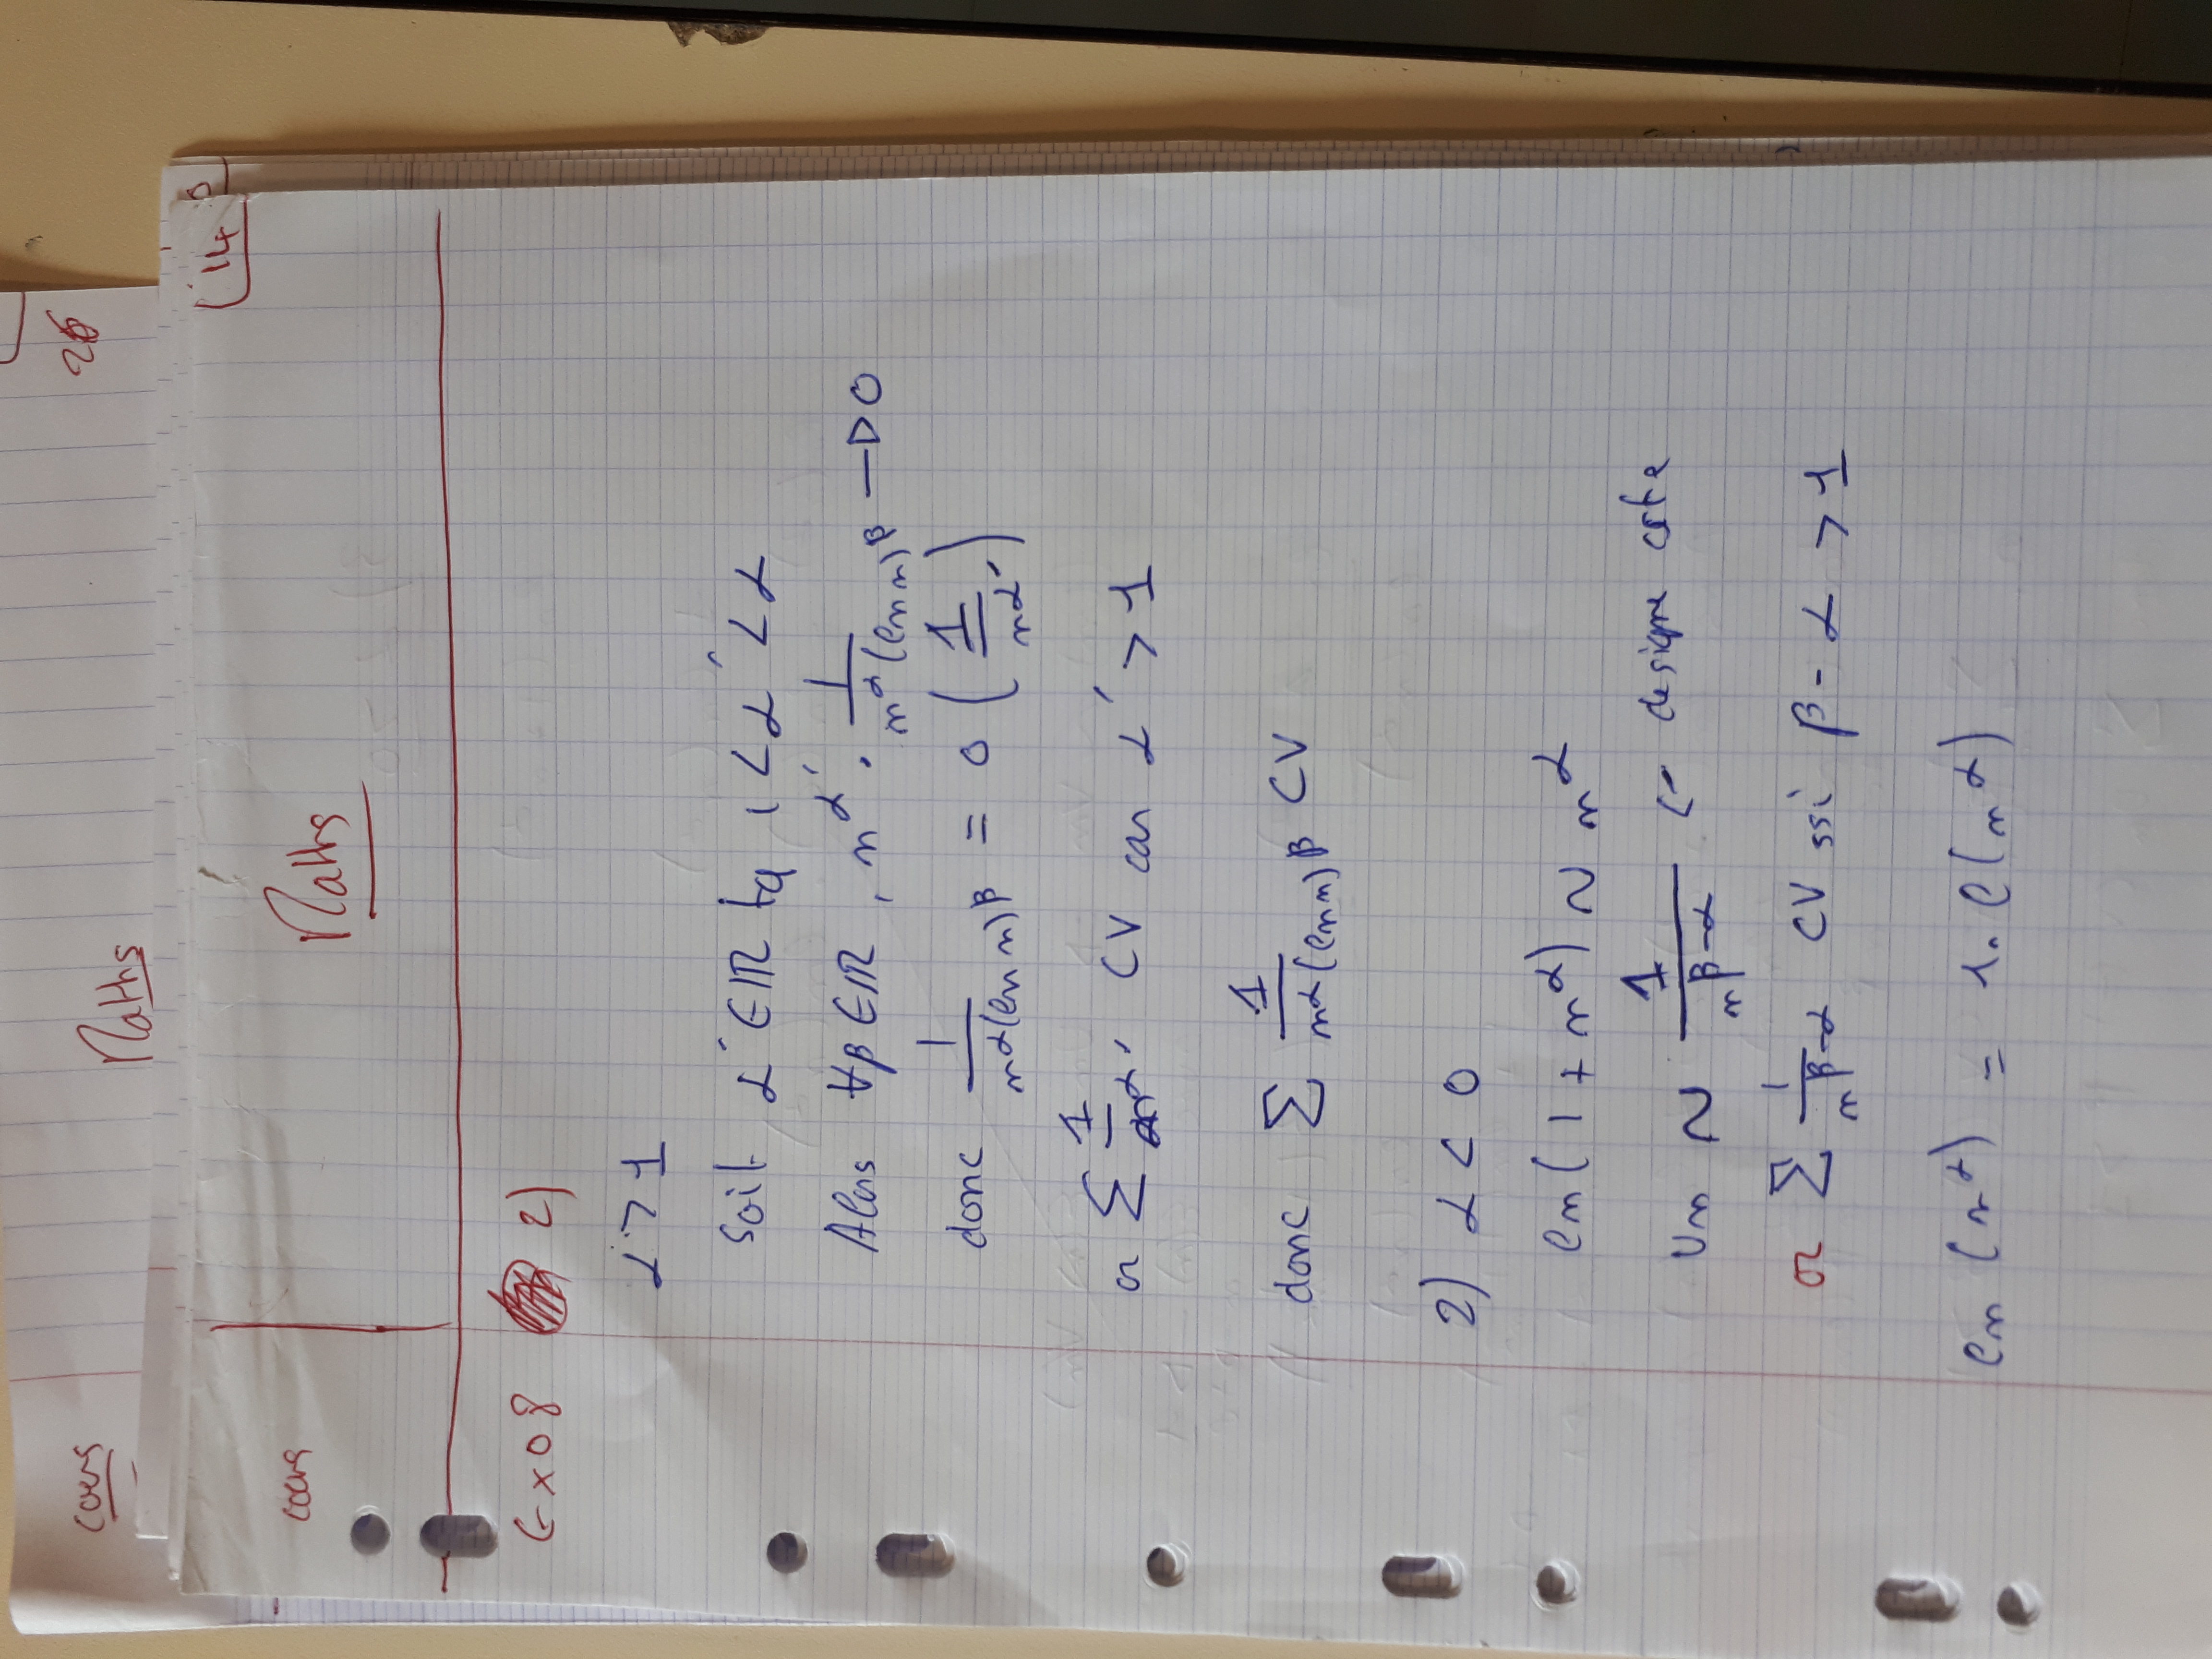 cours Maths 26
cours Maths 14
Exo 8 2)
α > 1
Soit α' ∈ ℝ tq 1 < α' < α
Alors ∀β ∈ ℝ, n^α' · 1/(n^α (ln n)^β) → 0
donc 1/(n^α (ln n)^β) = o(1/n^α')
or Σ 1/n^α' CV car α' > 1
donc Σ 1/(n^α (ln n)^β) CV
2) α < 0
ln(1 + n^α) ~ n^α
Un ~ 1/n^(β-α) ← designe cste
or Σ 1/n^(β-α) CV ssi β - α > 1